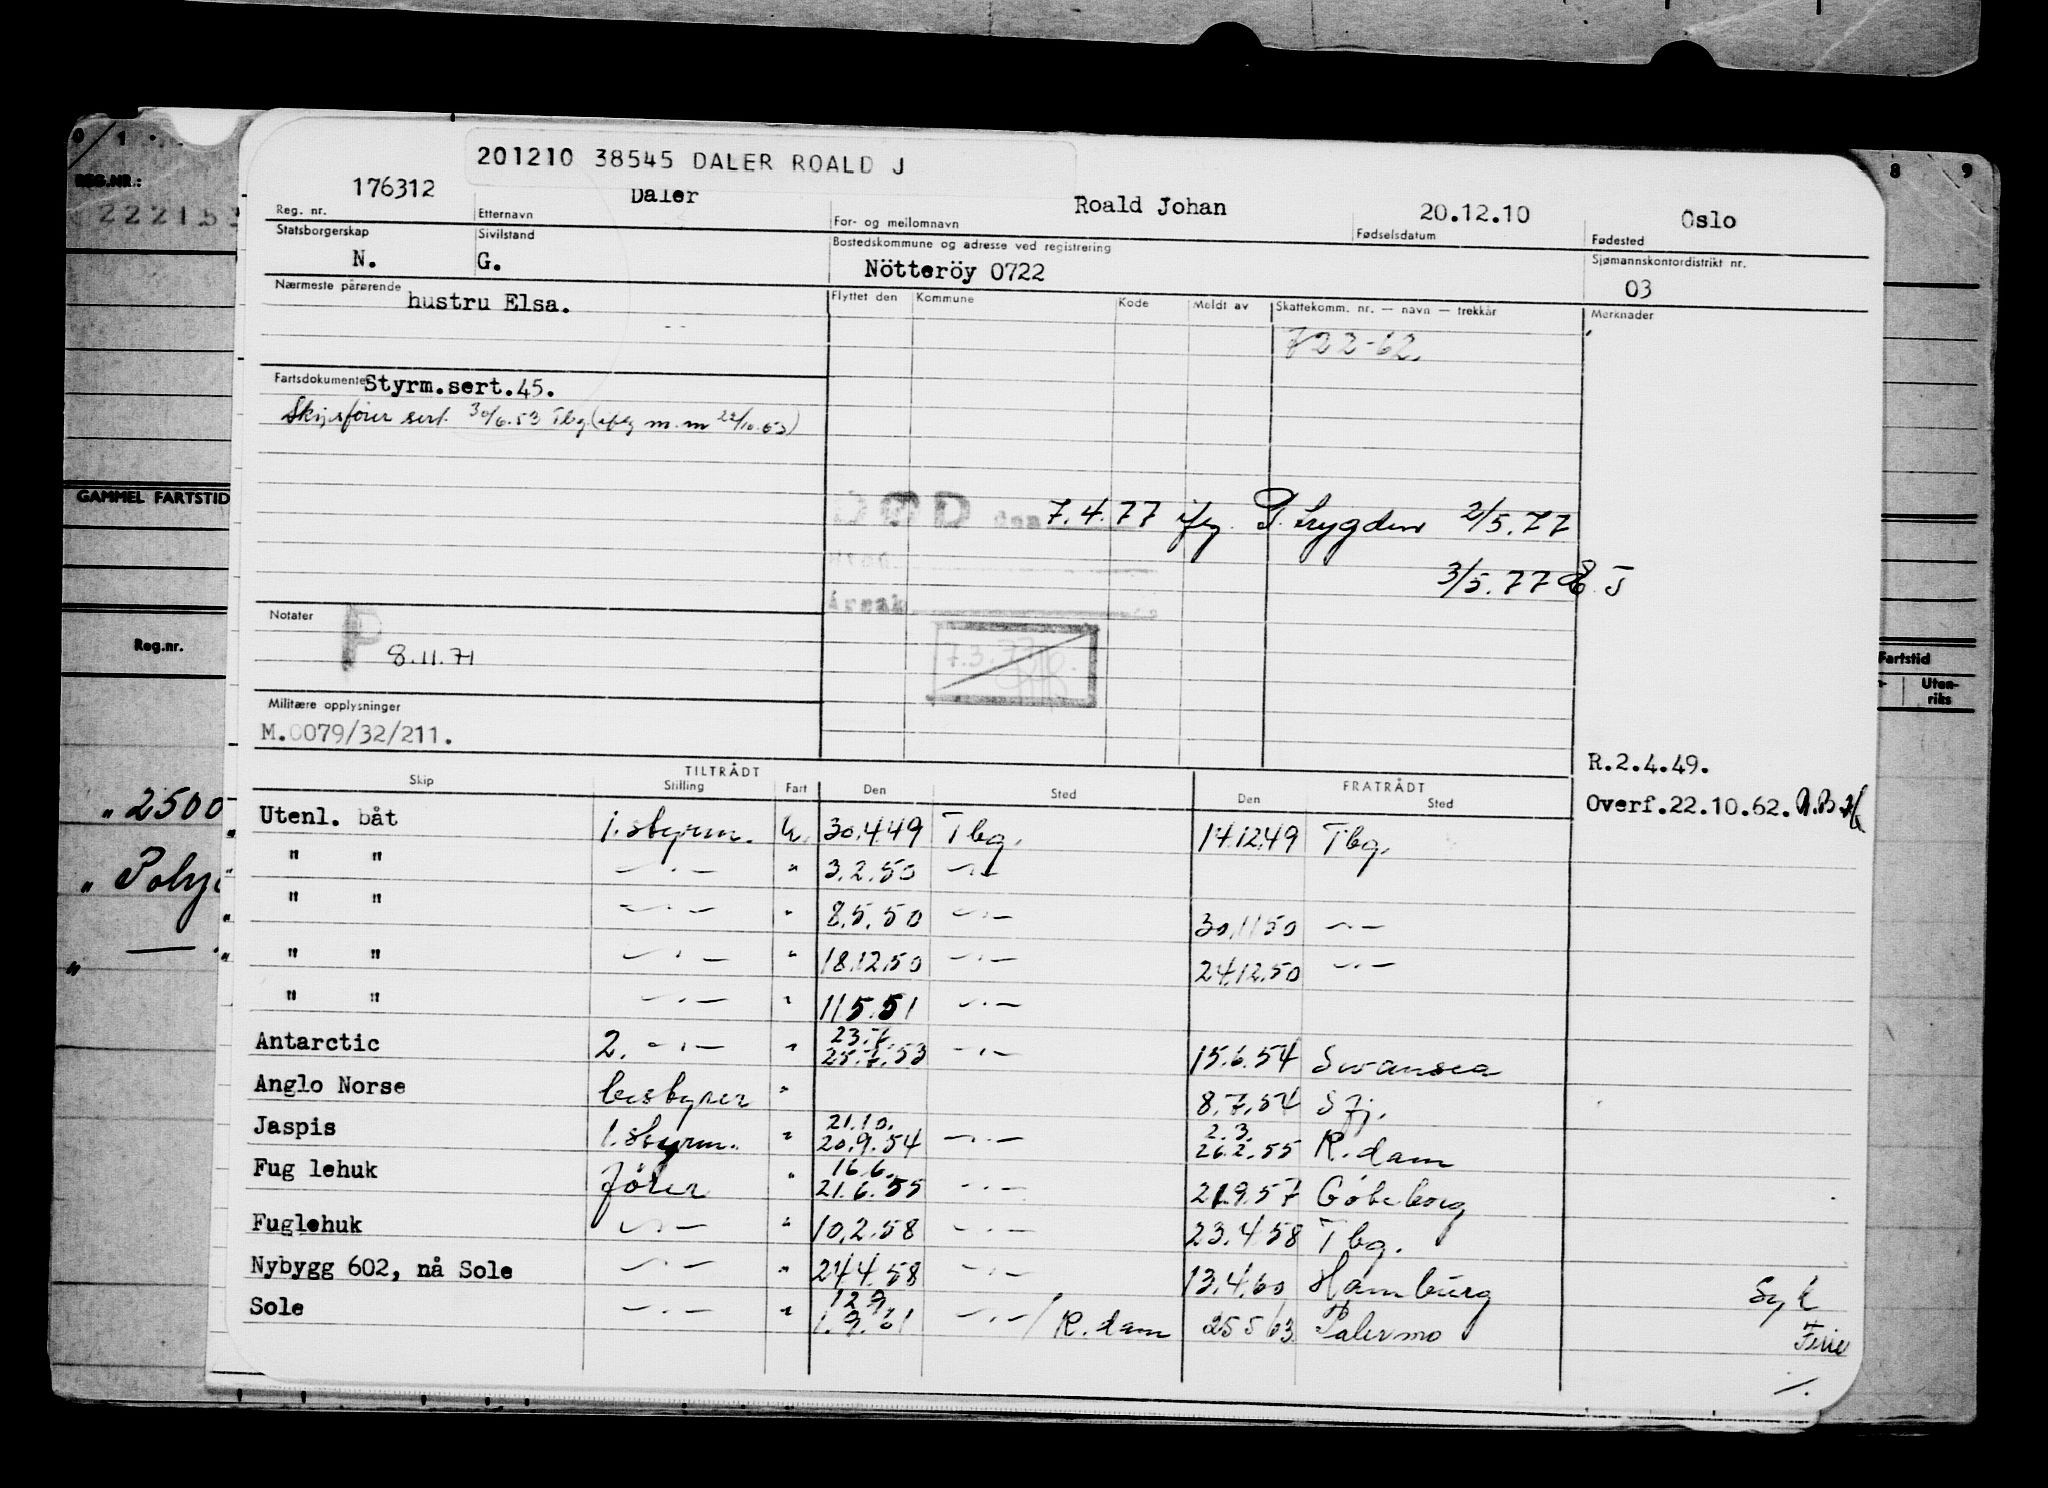 0 1 8 9
REG.NR.:
222153
GAMMEL FARTSTID
Reg.nr.
Fartstid
Uten-
riks
„ 2500
„ Poly
201210 38545 DALER ROALD J
176312 Daler Roald Johan 20.12.10 Oslo
Reg. nr. Etternavn For- og mellomnavn Fødselsdatum Fødested
Statsborgerskap Sivilstand Bostedskommune og adresse ved registrering Sjømannskontordistrikt nr.
N. G. Nötteröy 0722 03
Nærmeste pårørende Flyttet den Kommune Kode Meldt av Skattekomm. nr. — navn — trekkår Merknader
hustru Elsa.
722-62.
Fartsdokumenter Styrm.sert.45.
Skipsfører sert. 30/6.53 Tbg. m.m 22/10.63)
DØD den 7.4.77 ifg. P. trygden 2/5.77
3/5.77
Årsak
Notater
P 8.11.71
7.3.77
Militære opplysninger
M.0079/32/211.
R.2.4.49.
Overf.22.10.62.
TILTRÅDT FRATRÅDT
Skip Stilling Fart Den Sted Den Sted
Utenl. båt 1. styrm. U. 30.4.49 Tbg. 17.12.49 Tbg.
" " —·— " 3.2.50 —·—
" " —·— " 8.5.50 —·— 30.11.50 —·—
" " —·— " 18.12.50 —·— 24.12.50 —·—
" " —·— " 11.5.51 —·—
Antarctic 2. —·— " 23.7. 25.7.53 —·— 15.6.54 Swansea
Anglo Norse " 8.7.54 Sfj.
Jaspis 1. styrm. " 21.10. 20.9.54 —·— 2.3. 26.2.55 R.dam
Fug lehuk fører " 16.6. 21.6.55 —·— 21.9.57 Göteborg
Fuglehuk —·— " 10.2.58 —·— 23.4.58 Tbg.
Nybygg 602, nå Sole —·— " 24.4.58 —·— 13.4.60 Hamburg Syk
Sole —·— " 12.9. 1.9.61 —·—/R.dam 25.5.63 Palermo Ferie